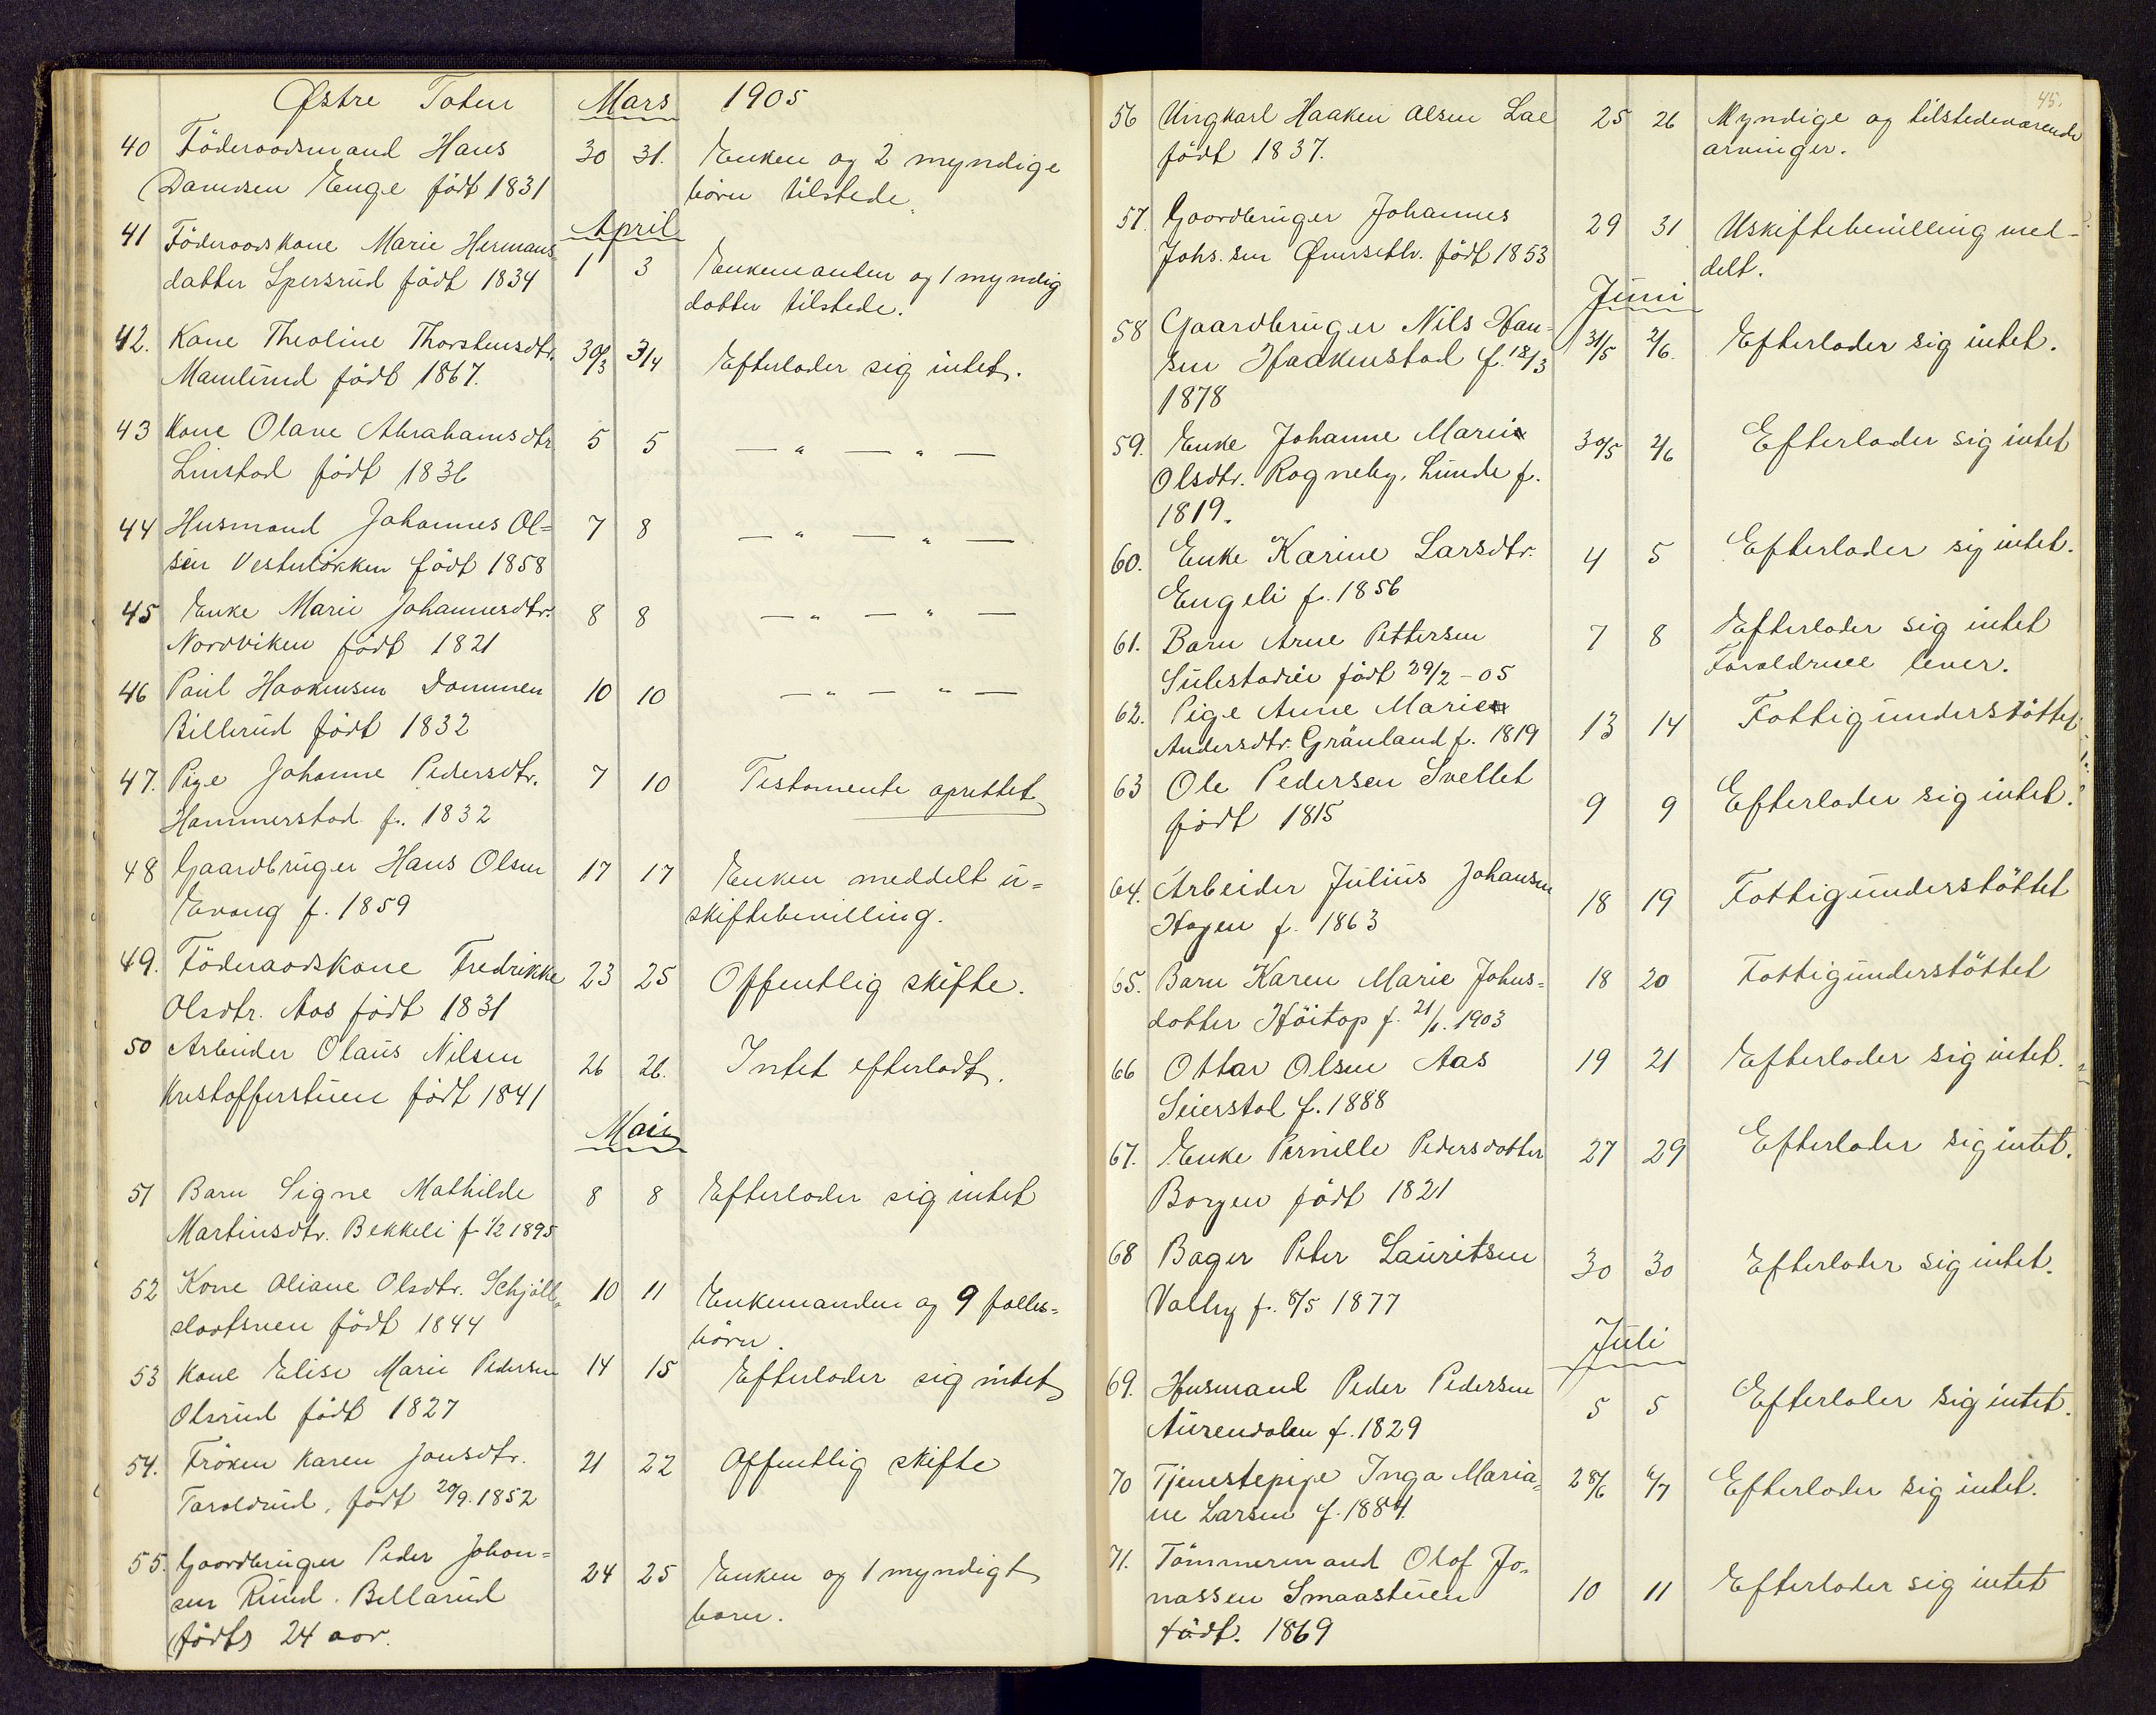 Østre Toten Mars 1905
40 Föderaadsmand Hans 30 31. Enken og 2 myndige
Danielsen Enge födt 1831 börn tilstede.
April
41 Föderaadskone Marie Hermans- 1 3 Enkemanden og 1 myndig
datter Spersrud födt 1834 datter tilstede.
42. Kone Theoline Thorstensdtr. 30/3 3/4 Efterlader sig intet.
Mamlund födt 1867.
43 Kone Olave Abrahamsdtr. 5 5 — " — " —
Linstad födt 1836
44 Husmand Johannes Ol= 7 8 — " — " —
sen Vesterlökken födt 1858
45 Enke Marie Johannesdtr. 8 8 — " — " —
Nordviken födt 1821
46 Paul Haakensen Dammen 10 10 — " — " —
Billerud födt 1832
47. Pige Johanne Pedersdtr. 7 10 Testamente oprettet
Hammerstad f. 1832
48 Gaardbruger Hans Olsen 17 17 Enken meddelt u=
Evang f. 1859 skiftebevilling.
49. Föderaadskone Fredrikke 23 25 Offentlig skifte.
Olsdtr. Aas födt 1831
50 Arbeider Olaus Nilsen 26 26. Intet efterladt.
Kristofferstuen födt 1841
Mai
51 Barn Signe Mathilde 8 8 Efterlader sig intet
Martinsdtr. Bekkeli f. 1/2 1895
52 Kone Oliane Olsdtr. Schjöll- 10 11 Enkemanden og 9 fælles=
födt 1844 börn.
53 Kone Elise Marie Pedersen 14 15 Efterlader sig intet
Olsrud födt 1827
54. Fröken Karen Jonsdtr. 21 22 Offentlig skifte
Taraldrud, födt 20/9. 1852
55. Gaardbruger Peder Johan= 24 25 Enken og 1 myndigt
sen Rund. Billerud barn.
födt 24 aar.
45.
56 Ungkarl Haaken Olsen Lae 25 26 Myndige og tilstedeværende
födt 1837. arvinger.
57. Gaardbruger Johannes 29 31 Uskiftebevilling med-
Johs.sen Øversetlr. födt 1853 delt.
Juni
58 Gaardbruger Nils Han- 31/5 2/6. Efterlader sig intet.
sen Haakenstad f. 18/3
1878
59. Enke Johanne Marie 30/5 2/6 Efterlader sig intet
Olsdtr. Rogneby, Lunde f.
1819.
60. Enke Karine Larsdtr. 4 5 Efterlader sig intet.
Engeli f. 1856
61. Barn Arne Pettersen 7 8 Efterlader sig intet
Sulestadie födt 29/2 - 05 Forældrene lever.
62. Pige Anne Marie 13 14 Fattigunderstöttet
Andersdtr. Grönland f. 1819
63 Ole Pedersen Svellet 9 9 Efterlader sig intet.
födt 1815
64. Arbeider Julius Johansen 18 19 Fattigunderstöttet
Hagen f. 1863
65. Barn Karen Marie Johns= 18 20 Fattigunderstöttet
datter Höitop f. 21/1. 1903
66 Ottar Olsen Aas 19 21 Efterlader sig intet.
Seierstal f. 1888
67. Enke Pernille Pedersdatter 27 29 Efterlader sig intet.
Borgen födt 1821
68 Bager Peter Lauritsen 30 30 Efterlader sig intet.
Valby f. 8/5 1877
Juli
69. Husmand Peder Pedersen 5 5 Efterlader sig intet.
Aurendalen f. 1829
70 Tjenestepige Inga Maria- 28/6 6/7 Efterlader sig intet.
ne Larsen f. 1884.
71. Tömmermand Olof Jo- 10 11 Efterlader sig intet
nassen Smaastuen
födt. 1869